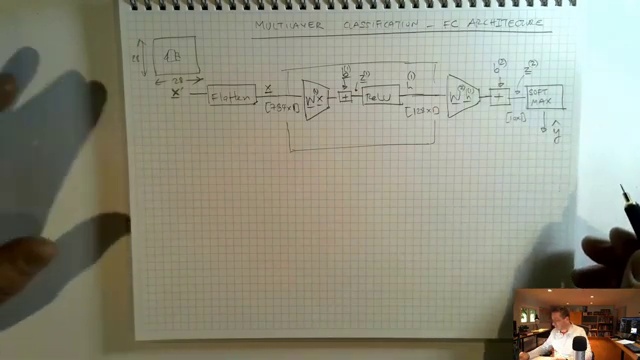 MULTILAYER CLASSIFICATION - FC ARCHITECTURE
28
28
X
Flatten
x
[784x1]
W(1) x
b(1)
+
z(1)
ReLU
h(1)
[128x1]
W(2) h(1)
b(2)
+
z(2)
[10x1]
SOFT
MAX
ŷ